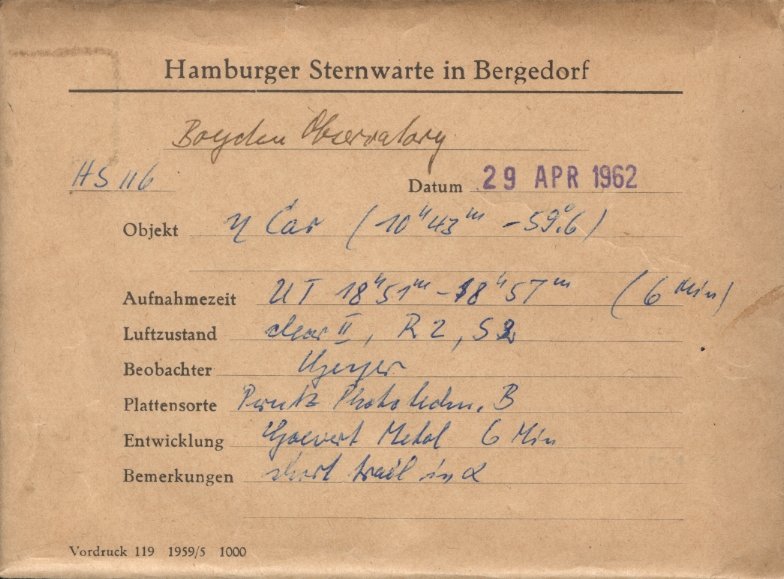 Hamburger Sternwarte in Bergedorf
Boyden Observatory
HS 116
Datum 29 APR 1962
Objekt η Car (10ʰ43ᵐ -59°.6)
Aufnahmezeit UT 18ʰ51ᵐ-18ʰ57ᵐ (6 Min)
Luftzustand clear II, R 2, S 2
Beobachter
Plattensorte Perutz Phototechn. B
Entwicklung Gevaert Metol 6 Min
Bemerkungen short trail in α
Vordruck 119 1959/5 1000